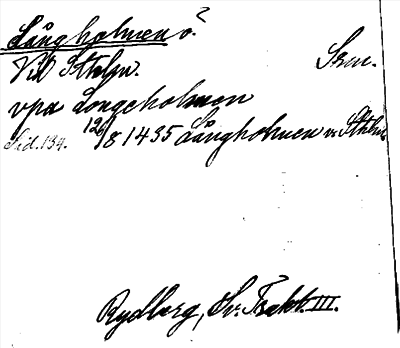 Långholmen ö?
Vid Sthlm. Srm.
vpa Longeholmen
Sid. 134. 12/8 1435 Långholmen v. Sthlm
Rydberg, Sv: Trakt. III.